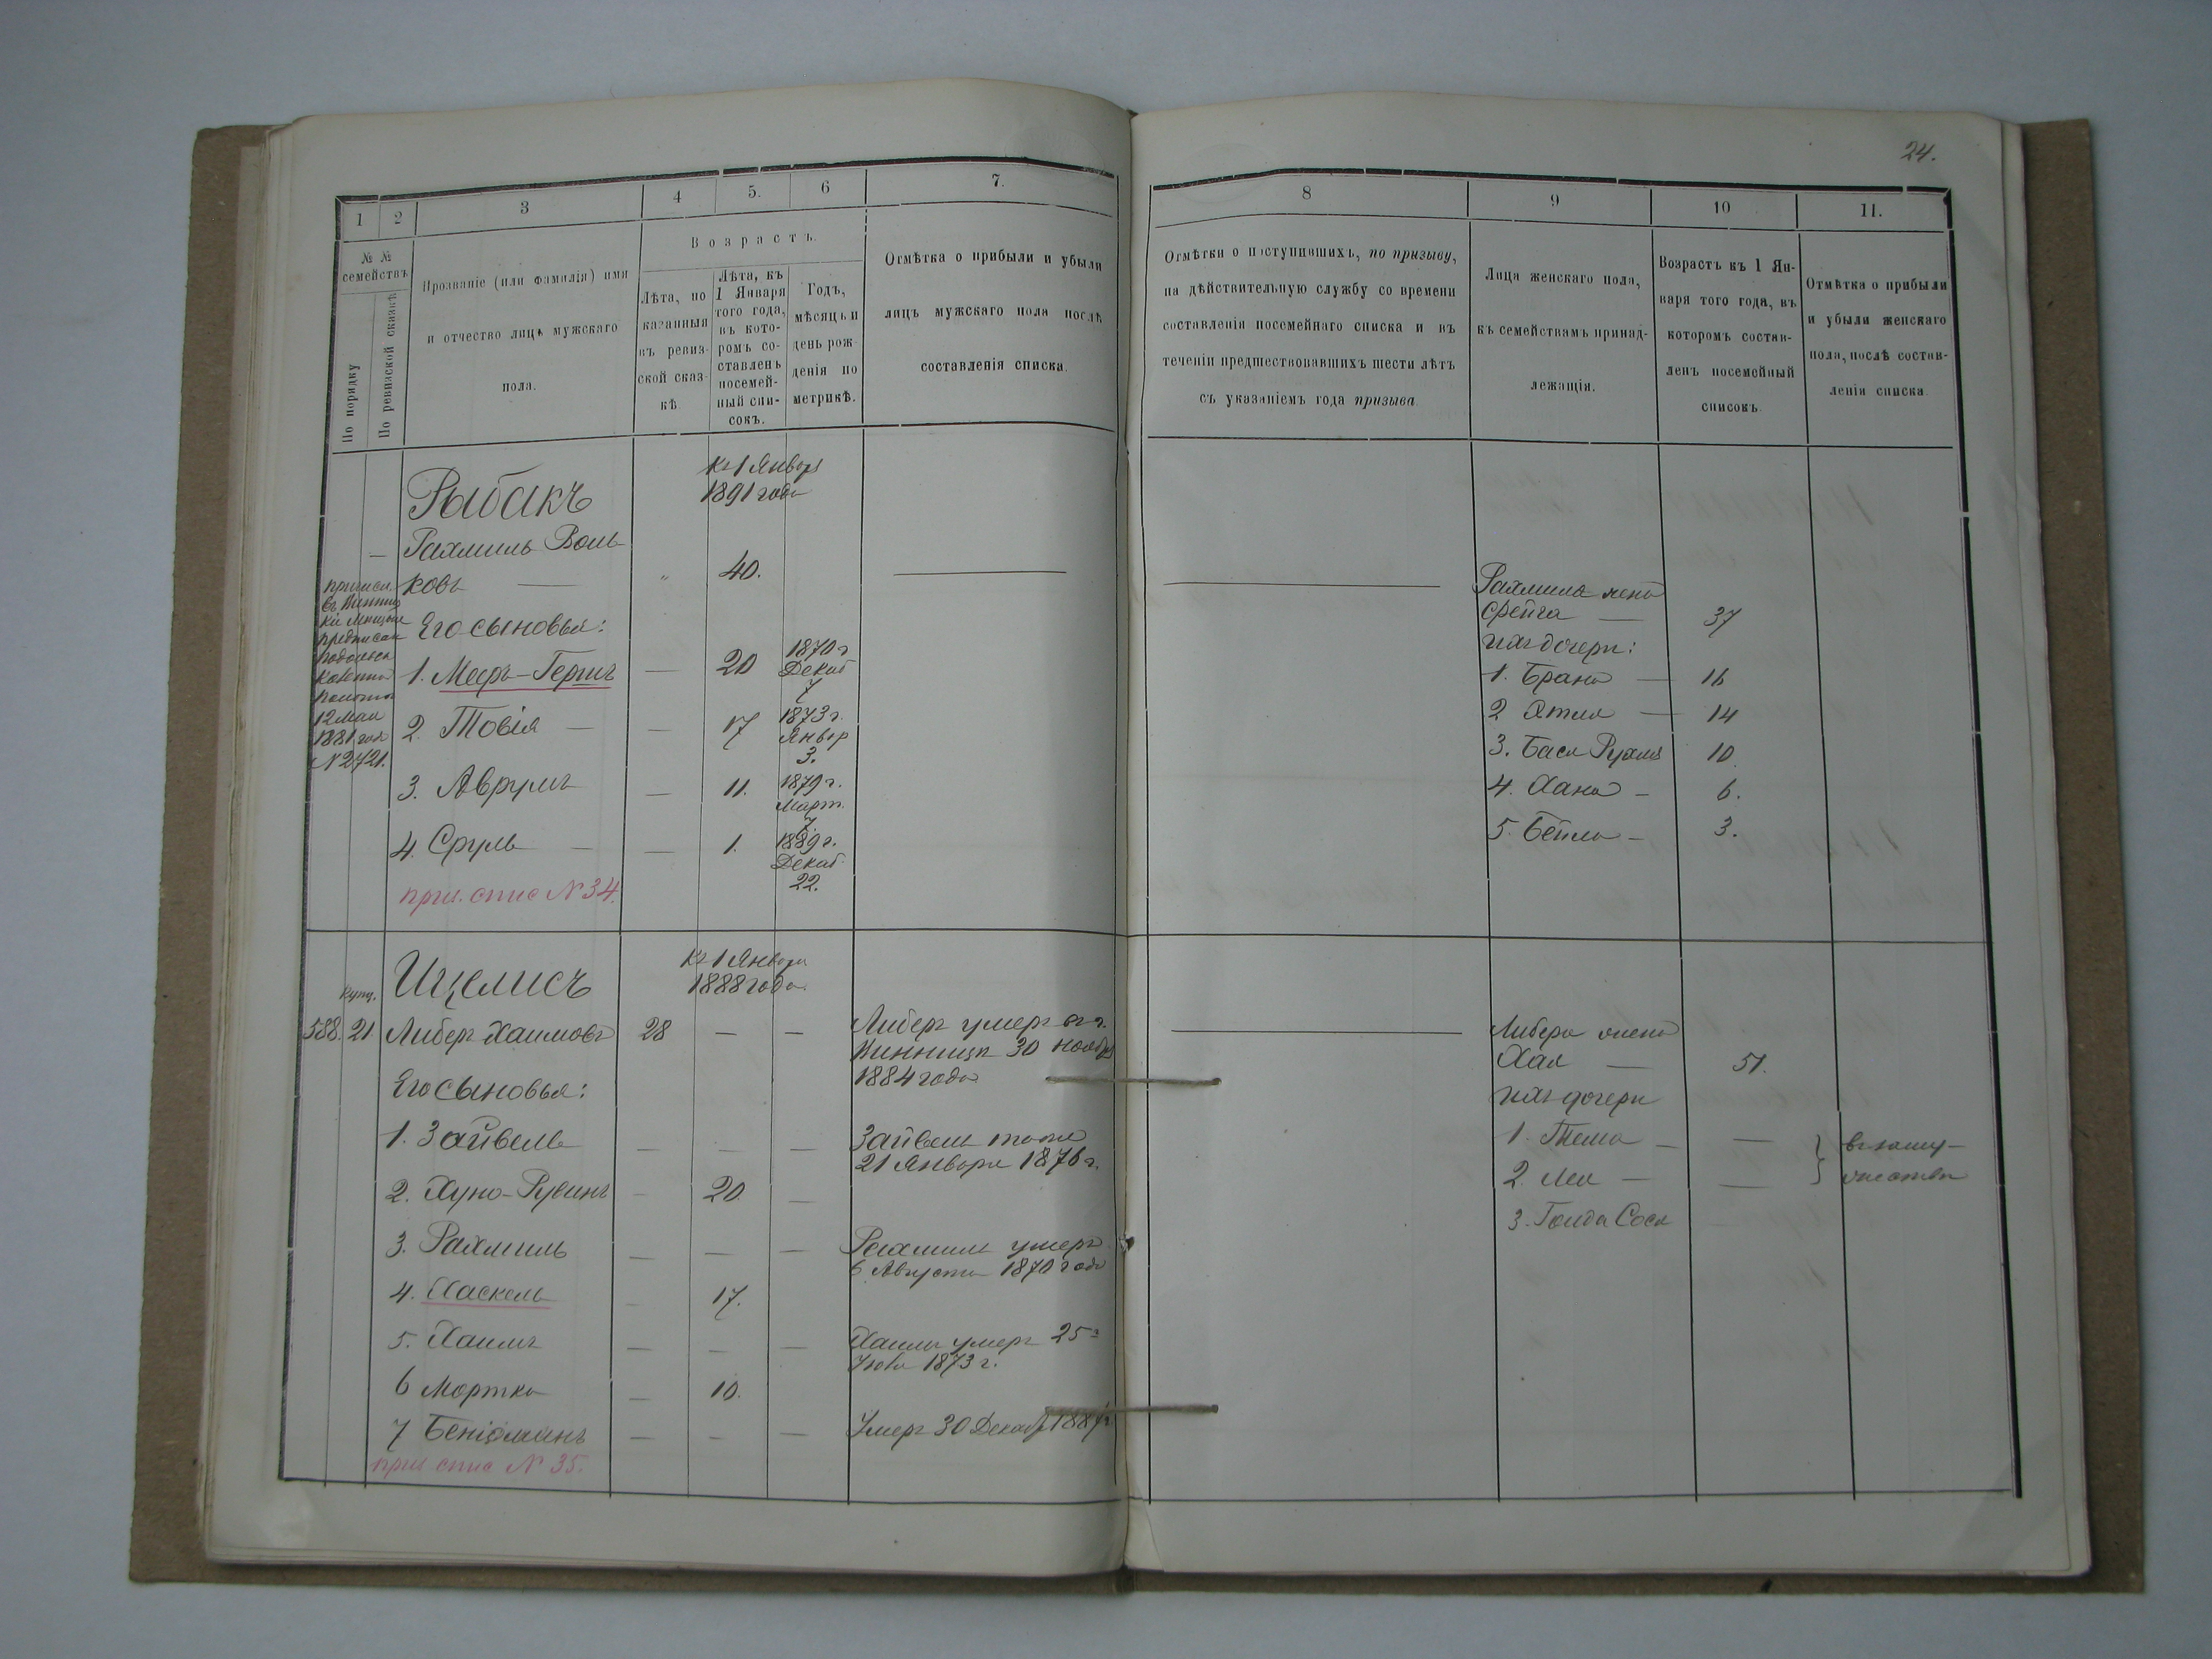 24.
1 2 3 4 5. 6 7.
№ №
семействъ
По порядку
По ревизской сказкѣ
Прозваніе (или фамилія) имя
и отчество лицъ мужскаго
пола.
Возрастъ.
Лѣта, по
казанныя
въ ревиз-
ской сказ-
кѣ
Лѣта, къ
1 Января
того года,
въ кото-
ромъ со-
ставленъ
посемей-
ный спи-
сокъ.
Годъ,
мѣсяцъ и
день рож
денія по
метрикѣ.
Отмѣтка о прибыли и убыли
лицъ мужскаго пола послѣ
составленія списка.
8 9 10 11.
Отмѣтки о поступившихъ, по призыву,
на дѣйствительную службу со времени
составленія посемейнаго списка и въ
теченіи предшествовавшихъ шести лѣтъ
съ указаніемъ года призыва.
Лица женскаго пола,
къ семействамъ принад-
лежащія.
Возрастъ къ 1 Ян-
варя того года, въ
которомъ состав-
ленъ посемейный
списокъ.
Отмѣтка о прибыли
и убыли женскаго
пола, послѣ состав-
ленія списка.
Къ 1 Января
1891 года
Рыбакъ
Рахмиль Воль-
ковъ — " 40.
12 Мая
1881 год
№ 2721.
Его сыновья:
1. Мееръ-Гершъ — 20 1870 г. Декаб 7
2. Товія — — 17 1873 г. Январ 3.
3. Аврумъ — 11. 1879 г. Март. 7.
4. Сруль — — 1. 1889 г. Декаб. 22.
при. спис № 34.
Рахмиля жена
Фейга — 37
ихъ дочери:
1. Брана — 16
2 Этля — 14
3. Бася Рухля 10
4. Хана — 6.
5. Бейла — 3.
Къ 1 Января
1888 года.
Ицелисъ
купц.
588. 21 Либеръ Хаимовъ 28 — —
Либеръ умеръ въ г.
Винницѣ 30 ноября
1884 года
Его сыновья:
1. Зайвель — — —
Зайвель тоже
21 Января 1876 г.
2. Хуно-Рувинъ — 20 —
3. Рахмиль — — —
Рахмиль умеръ
6 Августа 1870 года
4. Хаскель — 17.
5. Хаимъ — — —
Хаимъ умеръ 25го
1873 г.
6 Мортко — 10.
7 Беніоминъ — — —
Умеръ 30 Декаб 1887 г.
при спис № 35.
Либера жена
Хая — 51.
ихъ дочери
1. Тема — —
2. Лея — —
въ заму-
жествѣ
3. Голда Сося